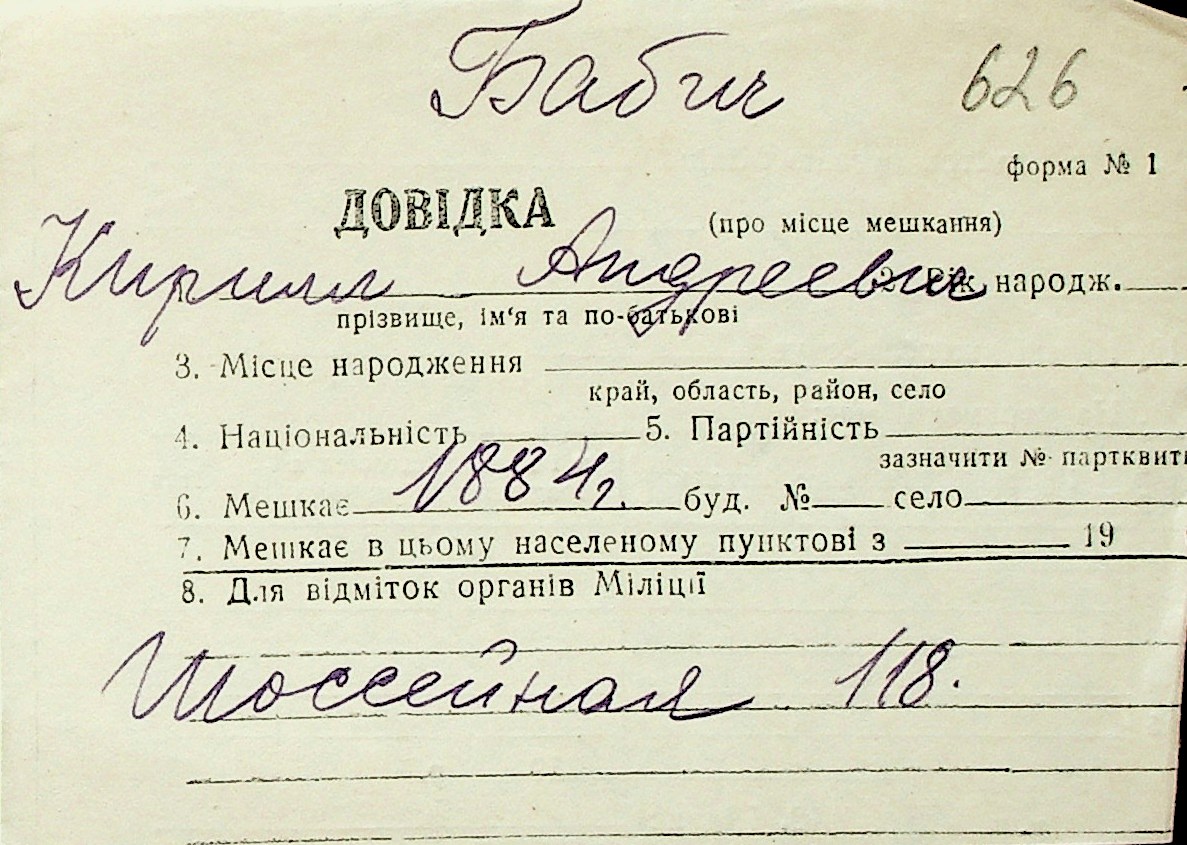 Бабич 626
форма № 1
ДОВІДКА (про місце мешкання)
Кирилл Андреевич 2. Рік народж.
прізвище, ім'я та по-батькові
3. Місце народження
край, область, район, село
4. Національність 5. Партійність
зазначити № партквит
1884 г.
6. Мешкає буд. № село
7. Мешкає в цьому населеному пунктові з 19
8. Для відміток органів Міліції
Шоссейная 118.